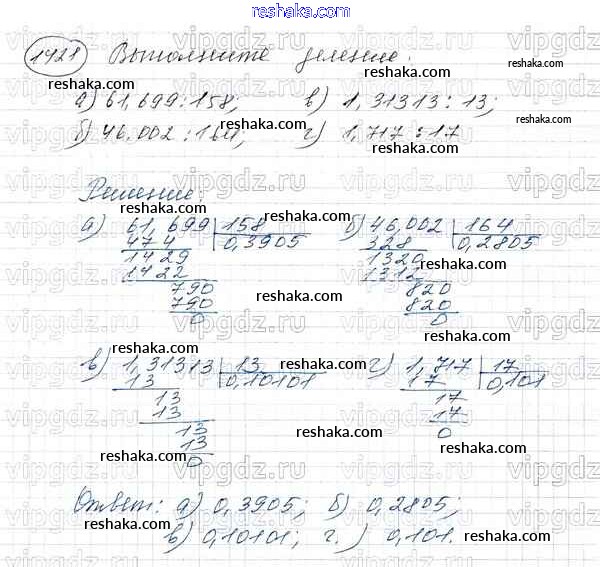 reshaka.com
1421 Выполните деление.
а) 61,699:158; в) 1,31313:13;
б) 46,002:164; г) 1,717:17
Решение:
а) 61,699 158 б) 46,002 164
474 0,3905 328 0,2805
1429 1320
1422 1312
790 820
790 820
0 0
в) 1,31313 13 г) 1,717 17
13 0,10101 17 0,101
13 17
13 17
13 0
13
0
Ответ: а) 0,3905; б) 0,2805;
в) 0,10101; г.) 0,101.